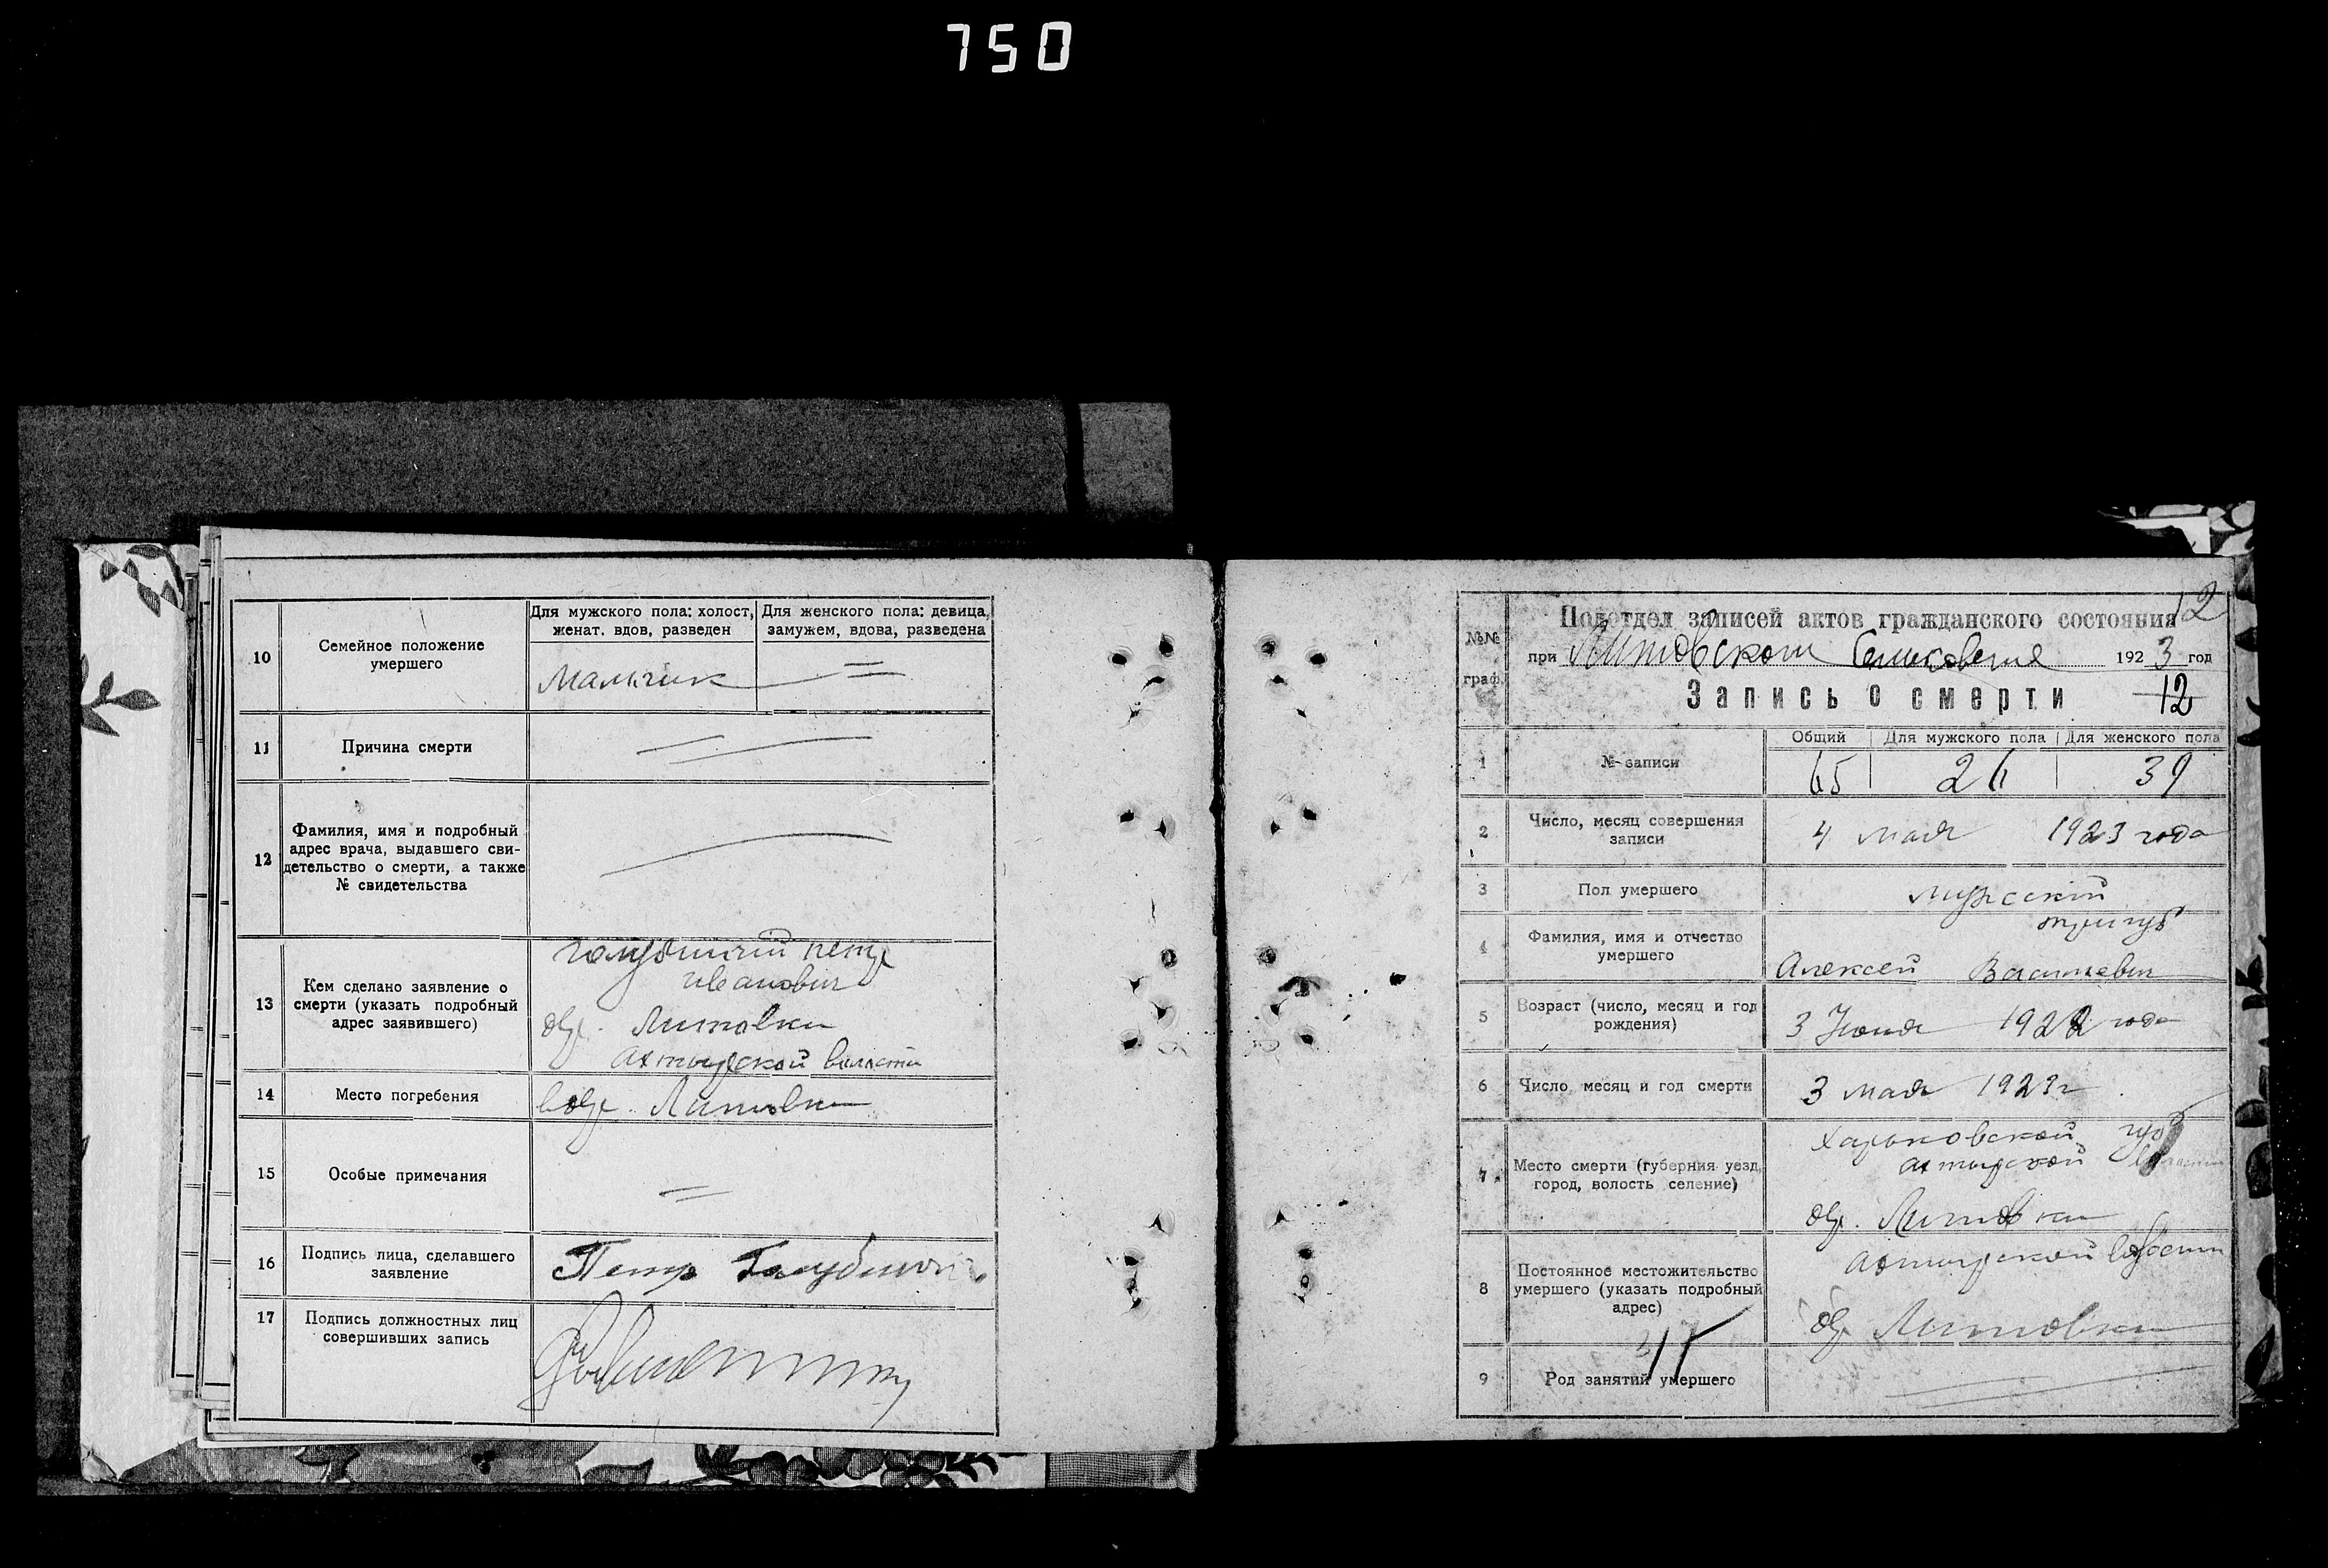 750
10
Семейное положение
умершего
Для мужского пола: холост,
женат. вдов, разведен
Для женского пола: девица,
замужем, вдова, разведена
Мальчик
11
Причина смерти
12
Фамилия, имя и подробный
адрес врача, выдавшего сви-
детельство о смерти, а также
№ свидетельства
13
Кем сделано заявление о
смерти (указать подробный
адрес заявившего)
Петр
Иванович
Литовки
Ахтырской волости
14
Место погребения
Литовки
15
Особые примечания
16
Подпись лица, сделавшего
заявление
Петр
17
Подпись должностных лиц
совершивших запись
12
№№
граф.
Подотдел записей актов гражданского состояния
при Литовском 1923 год
Запись о смерти
12
1
№ записи
Общий
Для мужского пола
Для женского пола
65
26
39
2
Число, месяц совершения
записи
4 мая 1923 года
3
Пол умершего
мужский
4
Фамилия, имя и отчество
умершего
Тригуб
Алексей
5
Возраст (число, месяц и год
рождения)
3 Июня 1922 года
6
Число месяц и год смерти
3 мая 1923 г
7
Место смерти (губерния уезд,
город, волость селение)
Харьковской губ
Ахтырской
Литовки
8
Постоянное местожительство
умершего (указать подробный
адрес)
Ахтырской волости
Литовки
9
Род занятий умершего